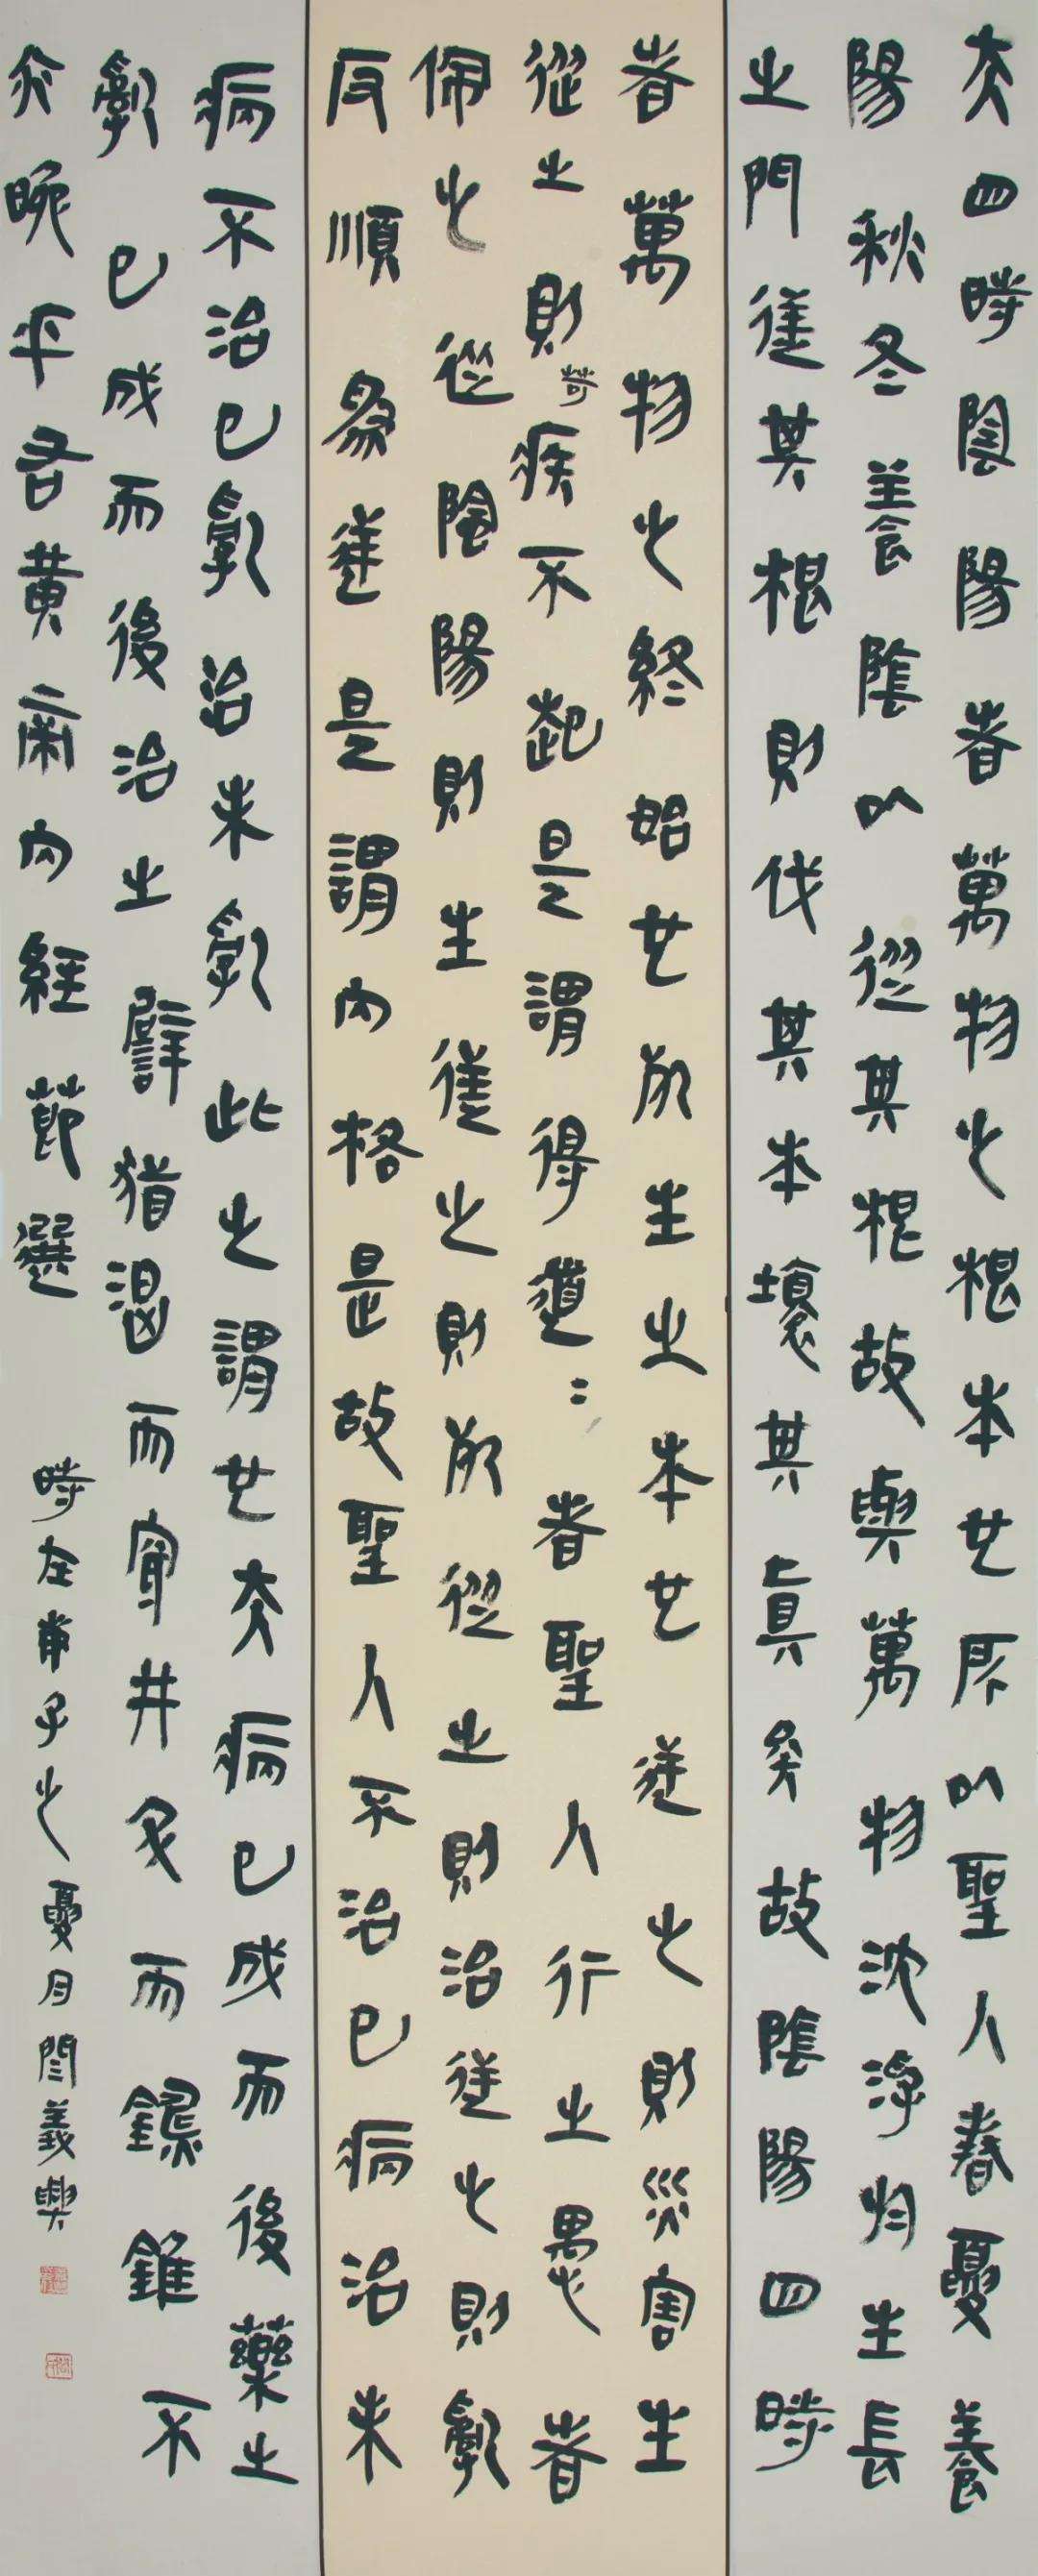 夫四時陰陽者萬物之根本也所以聖人春夏養
陽秋冬養陰以從其根故與萬物沈浮於生長
之門逆其根則伐其本壞其真矣故陰陽四時
者萬物之終始也死生之本也逆之則災害生
從之則苛疾不起是謂得道道者聖人行之愚者
佩之從陰陽則生逆之則死從之則治逆之則亂
反順為逆是謂內格是故聖人不治已病治未
病不治已亂治未亂此之謂也夫病已成而後藥之
亂已成而後治之譬猶渴而穿井鬥而鑄錐不
亦晚乎 右黃帝內經節選
時在甲子之夏月閆義興